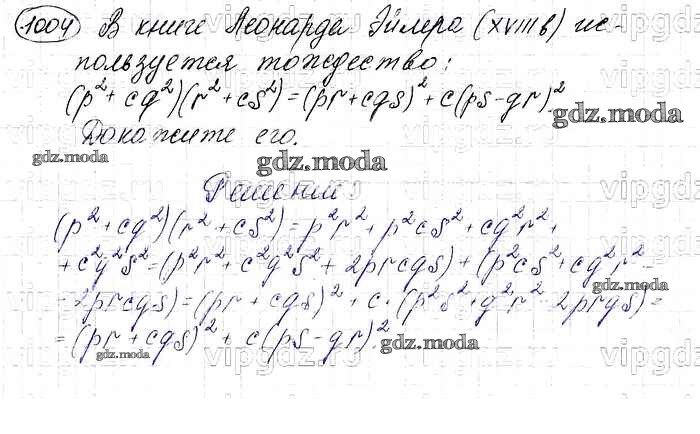 1004 В книге Леонарда Эйлера (XVIII в) ис-
пользуется тождество:
(p²+cq²)(r²+cs²)=(pr+cqs)²+c(ps-qr)².
Докажите его.
Решение
(p²+cq²)(r²+cs²)=p²r²+p²cs²+cq²r²+
+c²q²s²=(p²r²+c²q²s²+2prcqs)+(p²cs²+cq²r²-
-2prcqs)=(pr+cqs)²+c·(p²s²+q²r²-2prqs)=
=(pr+cqs)²+c(ps-qr)².
gdz.moda
gdz.moda
gdz.moda
gdz.moda
gdz.moda
gdz.moda
vipgdz.ru